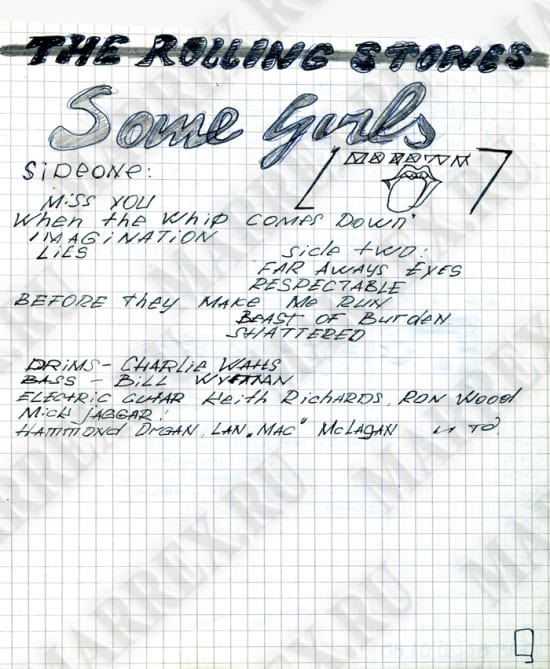 THE ROLLING STONES
Some Girls
SiDEONE:
MiSS YOU
When the Whip COMES DOWN'
IMAGiNATiON
LiES
Side two:
FAR AWAYS EYES
RESPECTABLE
BEFORE they MAKE Me RUN
BEAST OF Burden
SHATTERED
DRiMS - CHARLiE WAttS
BASS - BiLL WYMAN
ELECTRiC GUtAR Keith RiCHARDS, RON Wood
MiCK JAGGAR!
HAMMOND ORGAN, LAN „MAC" McLAGAN
MARREX.RU